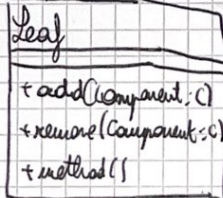 Leaf
+ add(Component:c)
+ remove(Component:c)
+ method()